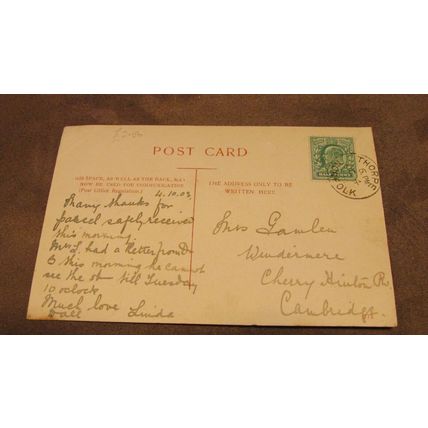 £2.00
POST CARD
THIS SPACE, AS WELL AS THE BACK, MAY
NOW BE USED FOR COMMUNICATION
(Post Office Regulation.)
4.10.03
Many thanks for
parcel safely received
this morning.
Mrs L. had a letter from D
this morning he cannot
see the till Tuesday
10 oclock
Much love
all Linda
THE ADDRESS ONLY TO BE
WRITTEN HERE.
THORPE
Mrs Gamlen
Windermere
Cherry Hinton R
Cambridge.